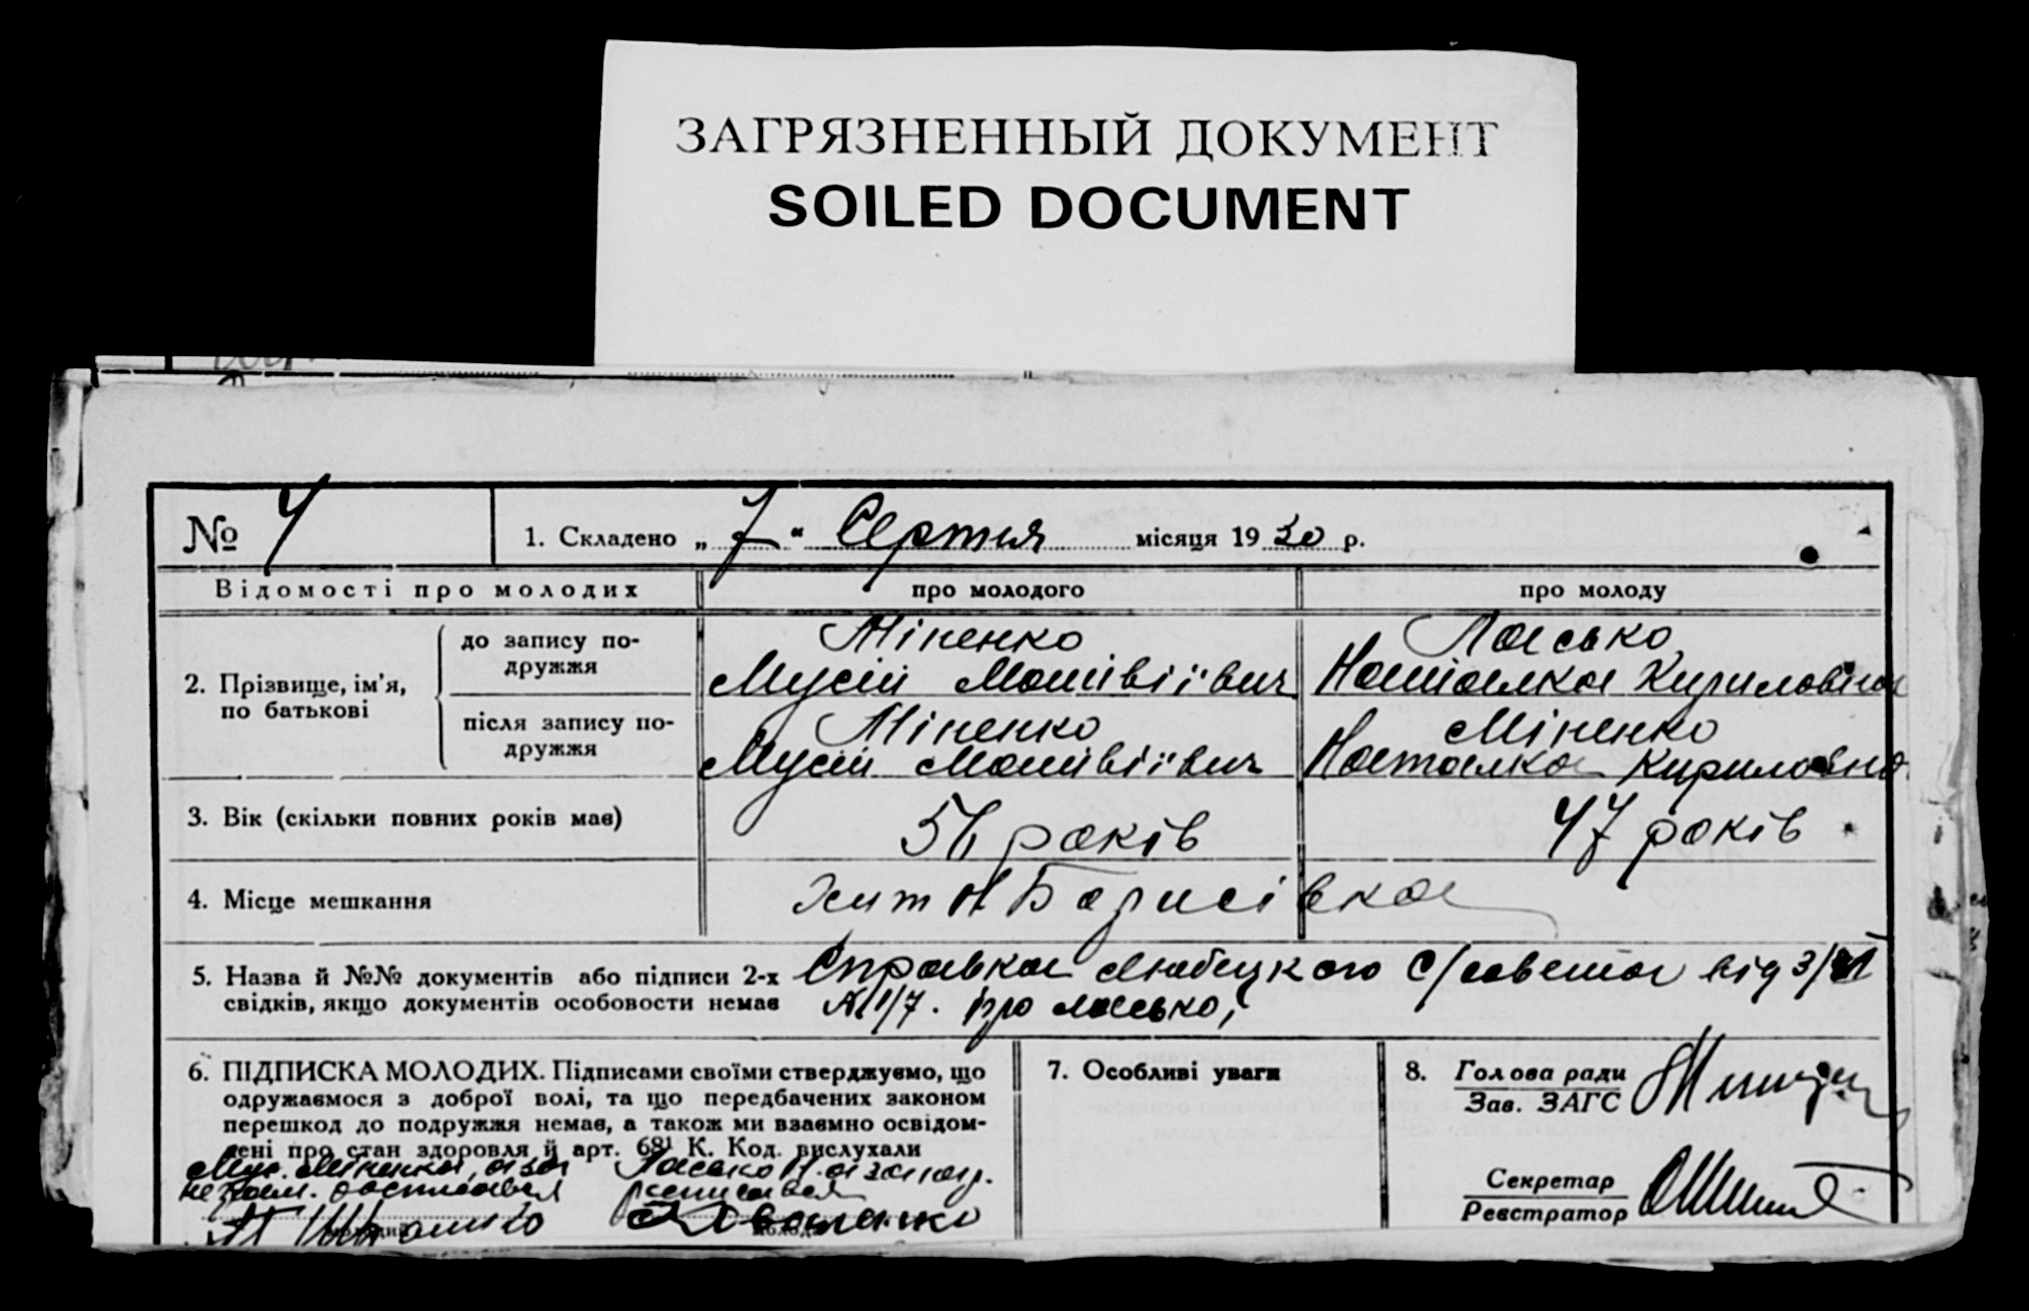 ЗАГРЯЗНЕННЫЙ ДОКУМЕНТ
SOILED DOCUMENT
№ 4
1. Складено „ 7 “ Серпня місяця 1930 р.
Відомості про молодих
про молодого
про молоду
2. Прізвище, ім’я, по батькові
до запису по-
дружжя
Міненко
Мусій Матвіївич
Ласько
Наталка Кириловна
після запису по-
дружжя
Міненко
Мусій Матвіївич
Міненко
Наталка Кириловна
3. Вік (скільки повних років має)
56 років
47 років
4. Місце мешкання
Борисівка
5. Назва й №№ документів або підписи 2-х
свідків, якщо документів особовости немає
Справка Любецкого С/совета від 3/
№ 1/7. про Ласько,
6. ПІДПИСКА МОЛОДИХ. Підписами своїми стверджуємо, що
одружаємося з доброї волі, та що передбачених законом
перешкод до подружжя немає, а також ми взаємно освідом-
лені про стан здоровля й арт. 68¹ К. Код. вислухали
Мус. Міненко, а за
Ласько Н. а за
неграм. росписався
росписався
7. Особливі уваги
8. Голова ради
Зав. ЗАГС
Секретар
Реєстратор